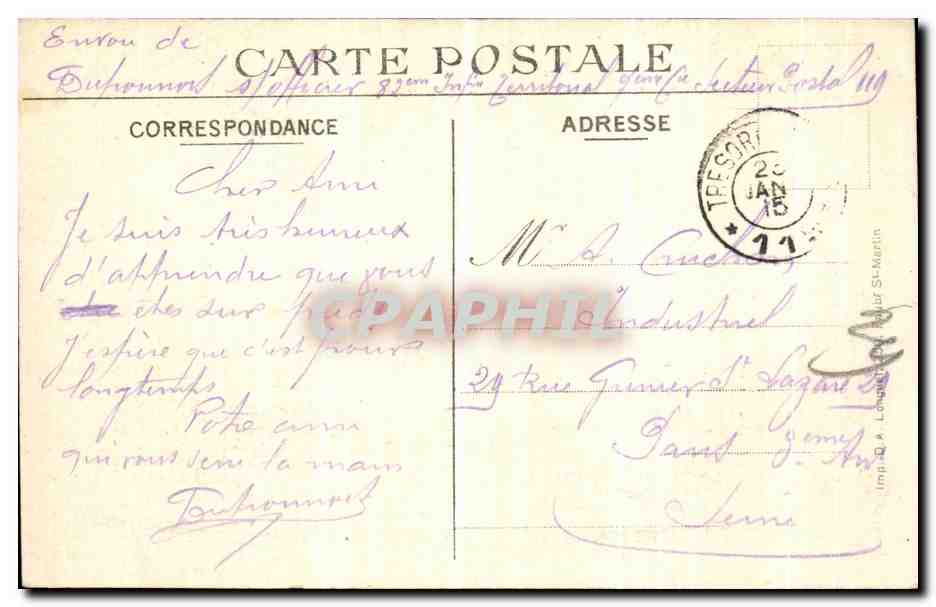 Envoi de
CARTE POSTALE
Duponnois s/officier 82em Inf in Territorial 9eme Cie Secteur Postal 119
CORRESPONDANCE
ADRESSE
TRESOR
JAN
15
* 11
Cher Ami
Je suis très heureux
d'apprendre que vous
etes sur pied
J'espère que c'est pour
longtemps
Votre ami
qui vous serre la main
Mr A.
Industriel
29 Rue Grenier St Lazare 29
Paris 3eme Arr
Seine
CPAPHIL
Imp. D.A. Longuet
St-Martin